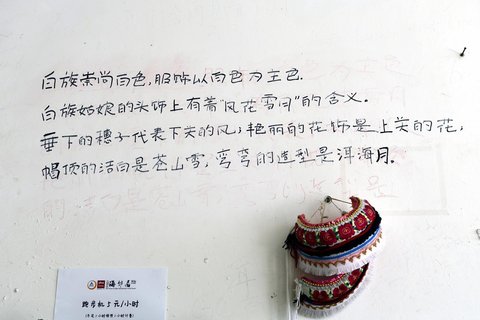 白族崇尚白色,服饰以白色为主色.
白族姑娘的头饰上有着"风花雪月"的含义.
垂下的穗子代表下关的风,艳丽的花饰是上关的花,
帽顶的洁白是苍山雪,弯弯的造型是洱海月.
跑步机5元/1小时